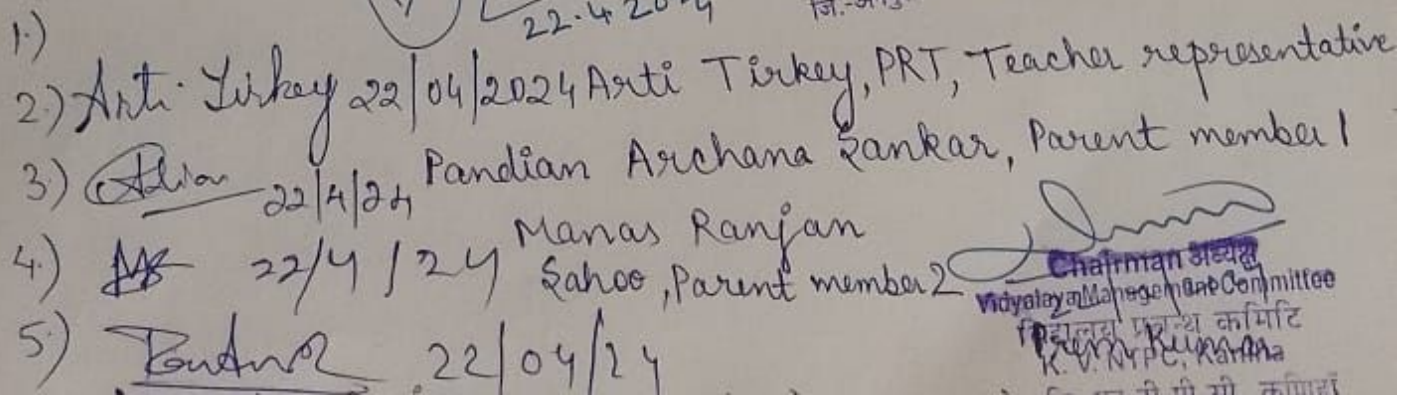 22.4.2024
1.)
2.) Arti Tirkey 22/04/2024 Arti Tirkey, PRT, Teacher representative
3.) 22/4/24 Pandian Archana Sankar, Parent member 1
4.) 22/4/24 Manas Ranjan
Sahoo, Parent member 2
Chairman अध्यक्ष
Vidyalaya Management Committee
विद्यालय प्रबन्ध कमिटि
5.) 22/04/24